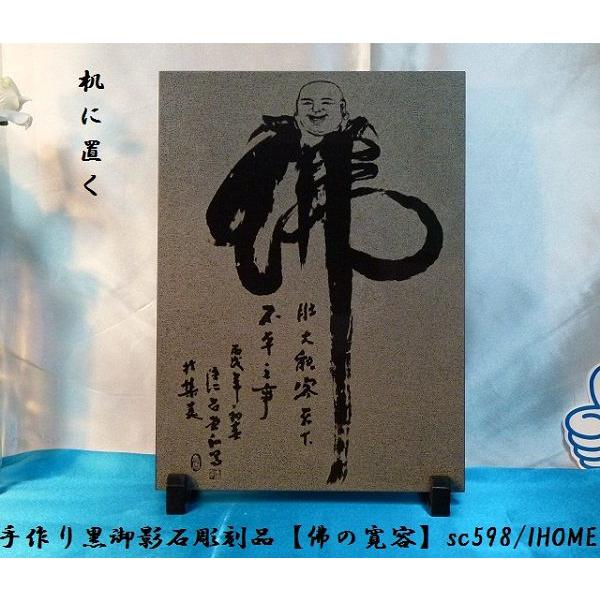 机に置く
佛
肚大能容天下
不平之事
丙戌年初春
手作り黒御影石彫刻品【佛の寛容】sc598/IHOME